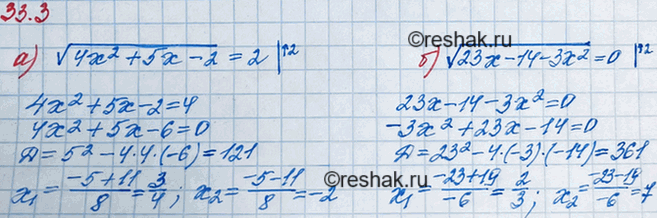 33.3
©reshak.ru
а) √(4x² + 5x - 2) = 2 |↑2
4x² + 5x - 2 = 4
4x² + 5x - 6 = 0
Д = 5² - 4·4·(-6) = 121
x₁ = (-5+11)/8 = 3/4; x₂ = (-5-11)/8 = -2
б) √(23x - 14 - 3x²) = 0 |↑2
23x - 14 - 3x² = 0
-3x² + 23x - 14 = 0
Д = 23² - 4·(-3)·(-14) = 361
x₁ = (-23+19)/-6 = 2/3; x₂ = (-23-19)/-6 = 7
©reshak.ru